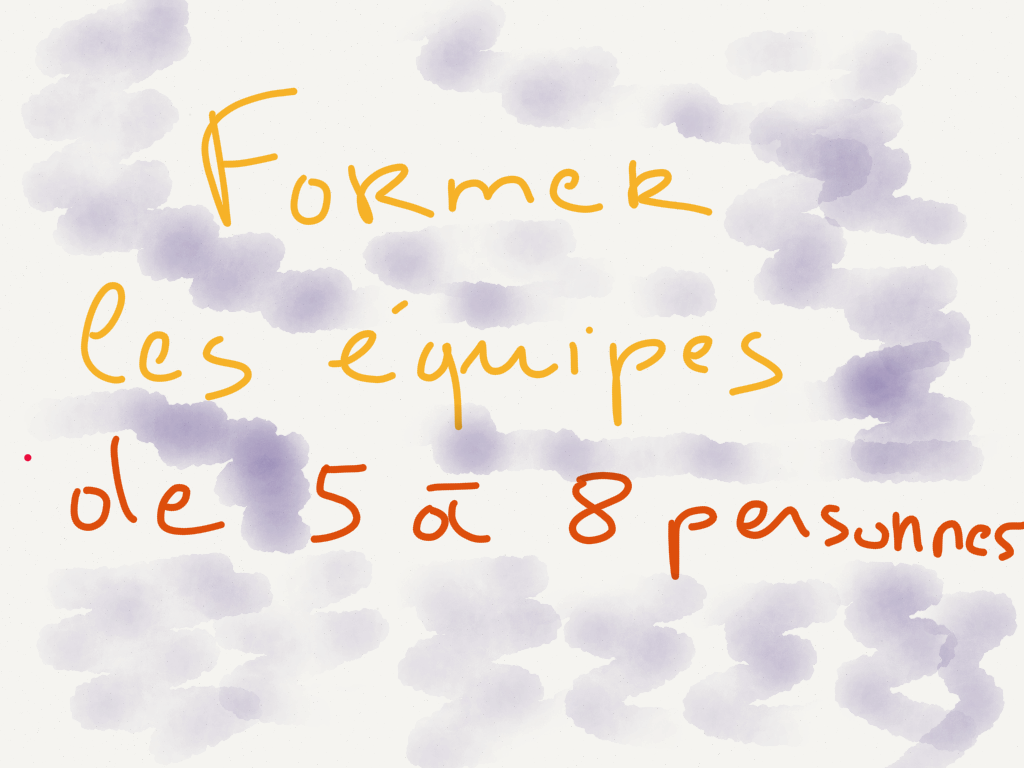 Former
les équipes
de 5 à 8 personnes